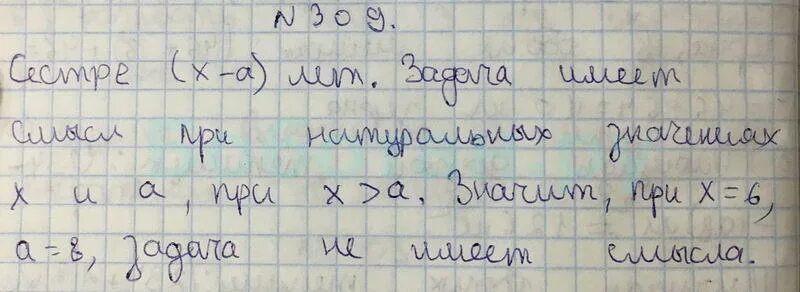 N 309.
Сестре (x-a) лет. Задача имеет
смысл при натуральных значениях
x и a, при x>a. Значит, при x=6,
a=8, задача не имеет смысла.